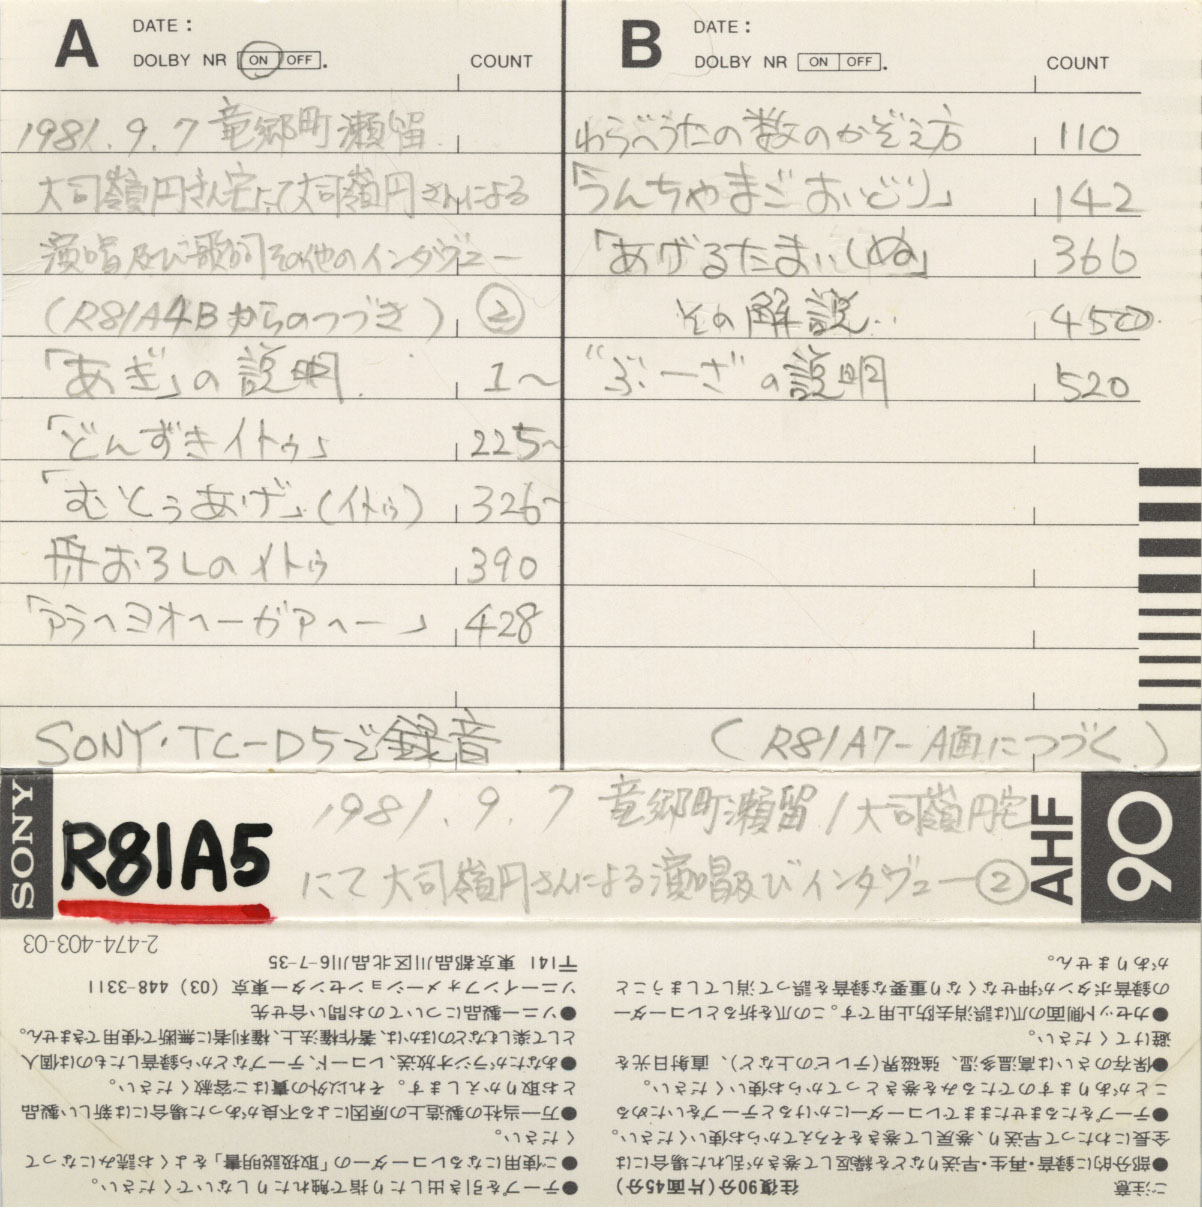 A DATE:
DOLBY NR ON OFF. COUNT
1981.9.7 竜郷町瀬留
大司嶺円さん宅にて大司嶺円さんによる
演唱及び歌詞その他のインタヴュー
(R81A4Bからのつづき) ②
「あぎ」の説明 1〜
「どんずきイトゥ」 225〜
「むとぅあげ」(イトゥ) 326〜
舟おろしのイトゥ 390
「アラヘヨオヘーガアヘー」 428
SONY・TC-D5で録音
B DATE:
DOLBY NR ON OFF. COUNT
わらべうたの数のかぞえ方 110
「うんちゃまごおいどり」 142
「あげるたまいしぬ」 366
その解説.. 450
"ぶーざ"の説明 520
(R81A7-A面につづく)
SONY
R81A5
1981.9.7 竜郷町瀬留/大司嶺円宅
にて大司嶺円さんによる演唱及びインタヴュー②
AHF
90
ご注意 往復90分(片面45分)
●部分的に録音・再生・早送りなどを繰返して巻きが乱れた場合には
全長にわたって早送り、巻戻して巻きをそろえてからお使いください。
●テープをたるませたままでレコーダーにかけるとテープをいためる
ことがありますのでたるみを巻きとってからお使いください。
●保存のさいは高温多湿、強磁界(テレビの上など)、直射日光を
避けてください。
●カセット側面の爪は誤消去防止用です。この爪を折るとレコーダー
の録音ボタンが押せなくなり重要な録音を誤って消してしまうこと
がありません。
●テープを引き出したり指で触れたりしないでください。
●ご使用になるレコーダーの「取扱説明書」をよくお読みになって
ください。
●万一当社の製造上の原因による不良があった場合には新しい製品
とお取りかえします。それ以外の責はご容赦ください。
●あなたがラジオ放送、レコード、テープなどから録音したものは個人
として楽しむなどのほかは、著作権法上、権利者に無断で使用できません。
●ソニー製品についてのお問い合せ先
ソニーインフォメーションセンター東京 (03) 448-3311
〒141 東京都品川区北品川6-7-35
2-474-403-03